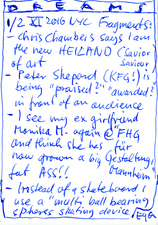 DREAMS
1/2 XII 2016 NYC Fragments:
- chris Chambers says I am
the new HEILAND (Savior
of art saviour
- Peter Shepend (KFG!) is
being "praised?" "awarded?"
in front of an audience
- I see my ex girlfriend
Monika M. again @ FHG
and think she has für
now grown a big Gestaltung,
fat ASS!! Mannheim
- Instead of a skateboard I
use a "multi ball bearing
spheres skating device/